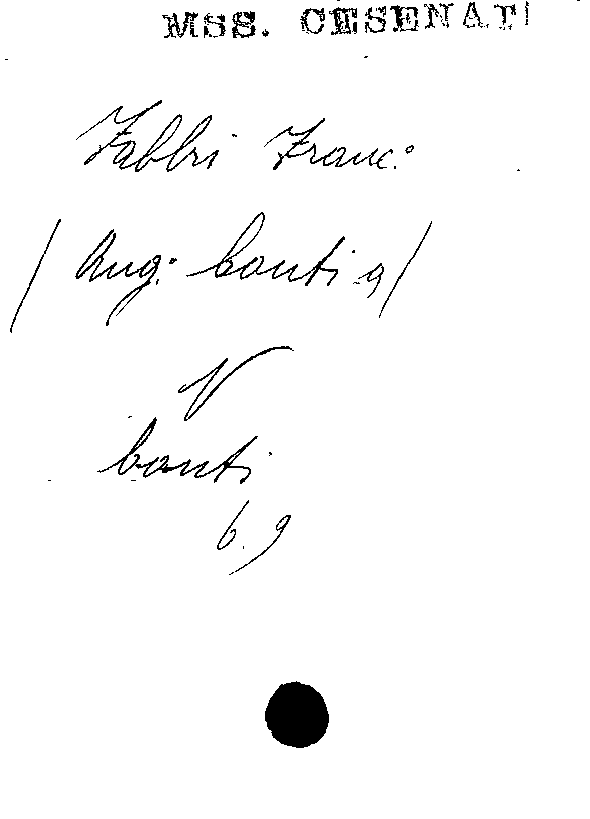 MSS. CESENATI
Fabbri Franc:
/ Aug: Conti 9/
V
Conti
6.9